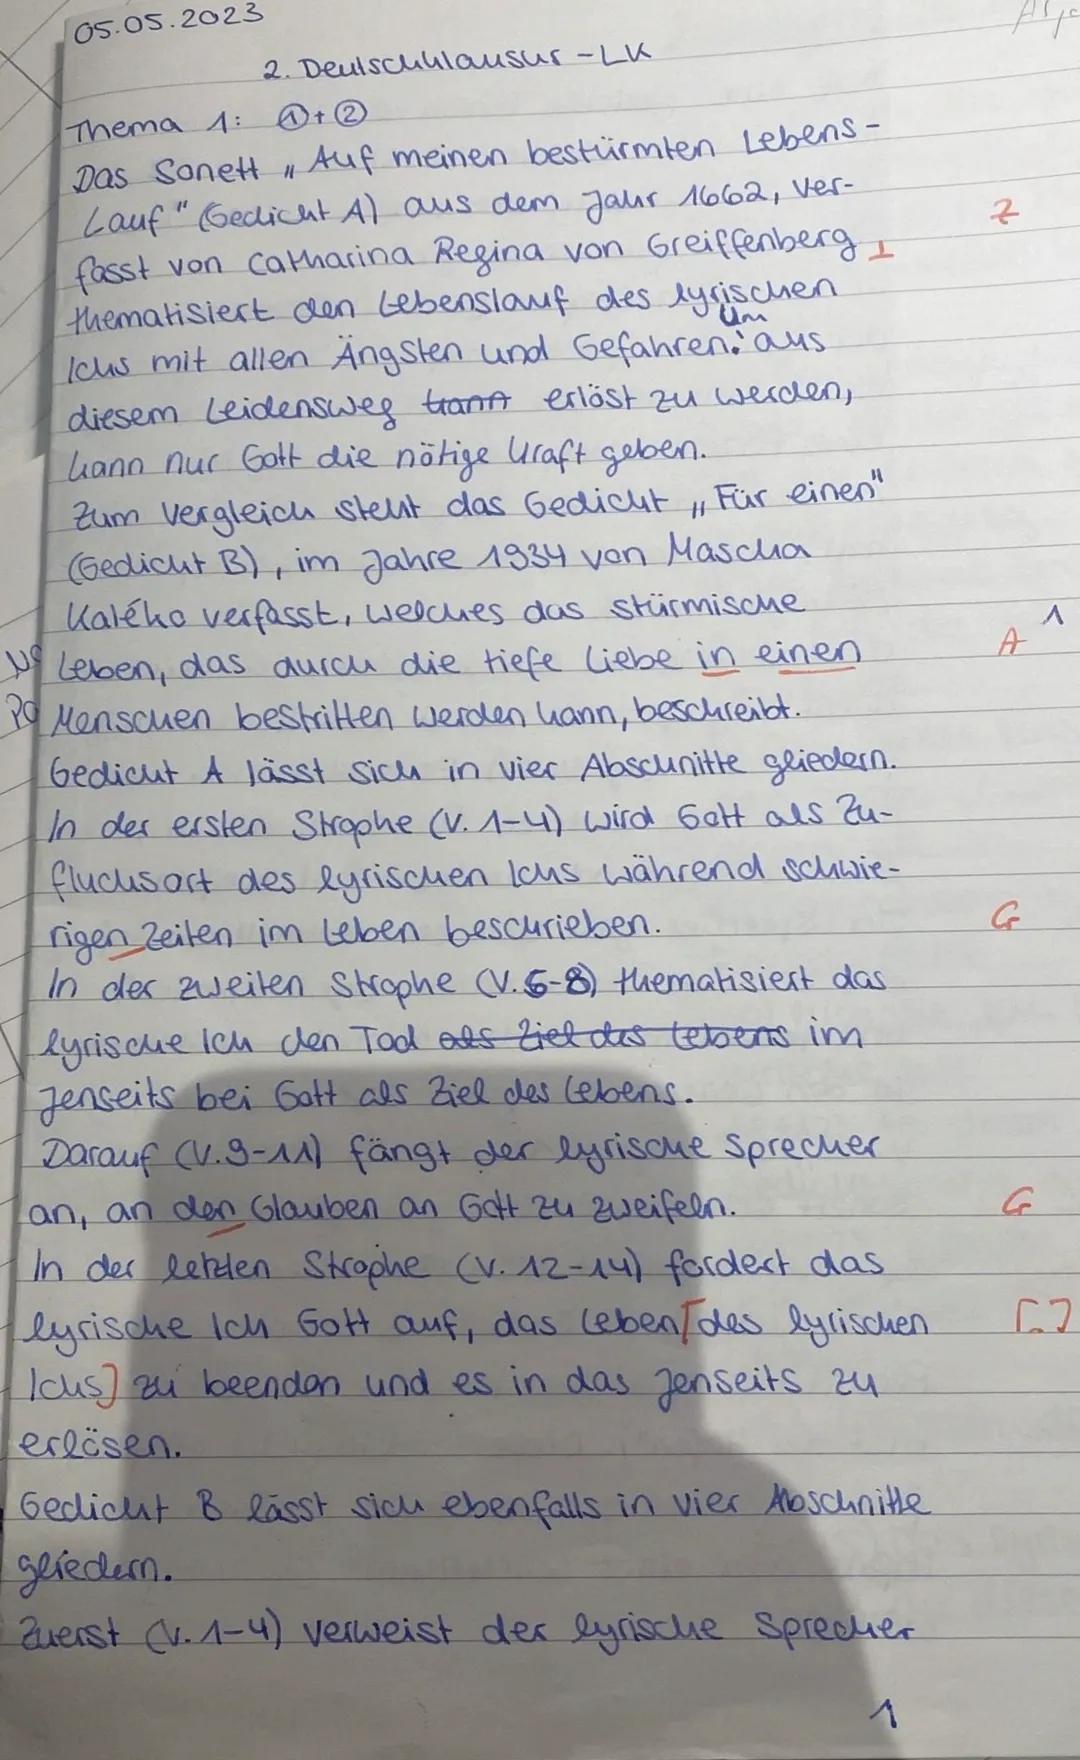 05.05.2023
2. Deutschklausur - LK
Thema 1: ①+②
Das Sonett „Auf meinen bestürmten Lebens-
Lauf" (Gedicht A) aus dem Jahr 1662, ver-
Z
fasst von Catharina Regina von Greiffenberg
thematisiert den Lebenslauf des lyrischen
Um
Ichs mit allen Ängsten und Gefahren. aus
diesem Leidensweg erlöst zu werden,
kann nur Gott die nötige Kraft geben.
Zum Vergleich steht das Gedicht „Für einen"
(Gedicht B), im Jahre 1934 von Mascha
Kaléko verfasst, welches das stürmische
1
Leben, das durch die tiefe Liebe in einen
A
Menschen bestritten werden kann, beschreibt.
Gedicht A lässt sich in vier Abschnitte gliedern.
In der ersten Strophe (V. 1-4) wird Gott als Zu-
fluchsort des lyrischen Ichs während schwie-
rigen Zeiten im Leben beschrieben.
G
In der zweiten Strophe (V. 5-8) thematisiert das
lyrische Ich den Tod als Ziel des Lebens im
Jenseits bei Gott als Ziel des Lebens.
Darauf (V. 9-11) fängt der lyrische Sprecher
an, an den Glauben an Gott zu zweifeln.
G
In der letzten Strophe (V. 12-14) fordert das
lyrische Ich Gott auf, das Leben [des lyrischen
[.]
Ichs] zu beenden und es in das Jenseits zu
erlösen.
Gedicht B lässt sich ebenfalls in vier Abschnitte
gliedern.
Zuerst (V. 1-4) verweist der lyrische Sprecher
1